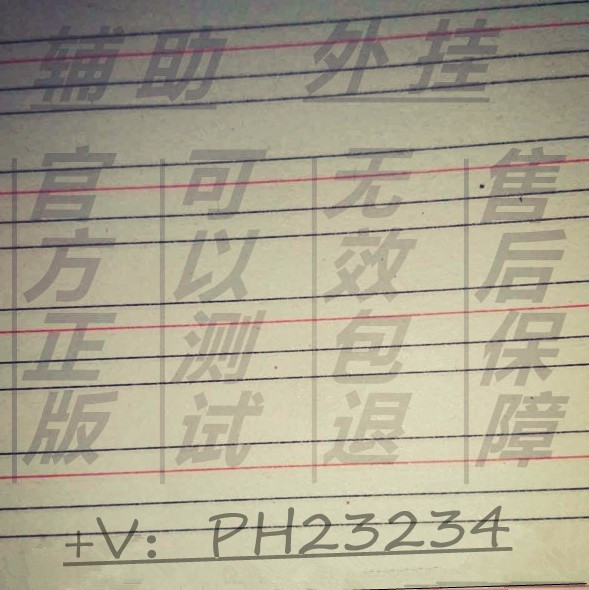 辅助 外挂
官方正版
可以测试
无效包退
售后保障
+V: PH23234